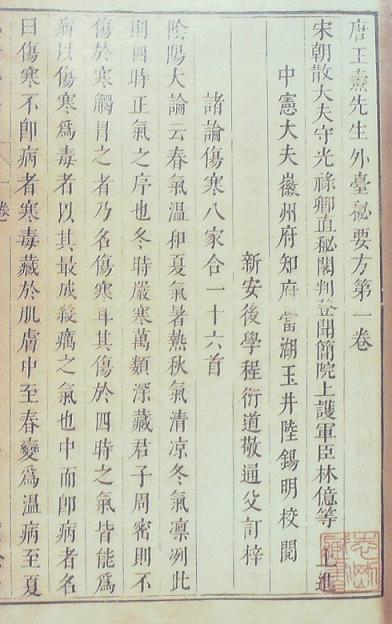 唐王燾先生外臺秘要方第一卷
宋朝散大夫守光祿卿直秘閣判登聞簡院上護軍臣林億等 上進
中憲大夫徽州府知府當湖玉井陸錫明校閱
新安後學程衍道敬通父訂梓
諸論傷寒八家合一十六首
陰陽大論云春氣溫和夏氣暑熱秋氣清凉冬氣凛冽此
則四時正氣之序也冬時嚴寒萬類深藏君子周密則不
傷於寒觸冒之者乃名傷寒耳其傷於四時之氣皆能爲
病以傷寒爲毒者以其最成殺癘之氣也中而卽病者名
曰傷寒不卽病者寒毒藏於肌膚中至春變爲溫病至夏